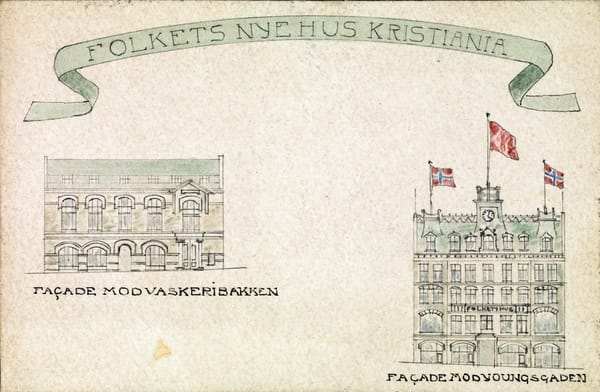 FOLKETS NYE HUS KRISTIANIA
FAÇADE MOD VASKERIBAKKEN
FOLKETS HUS
FAÇADE MOD YOUNGSGADEN